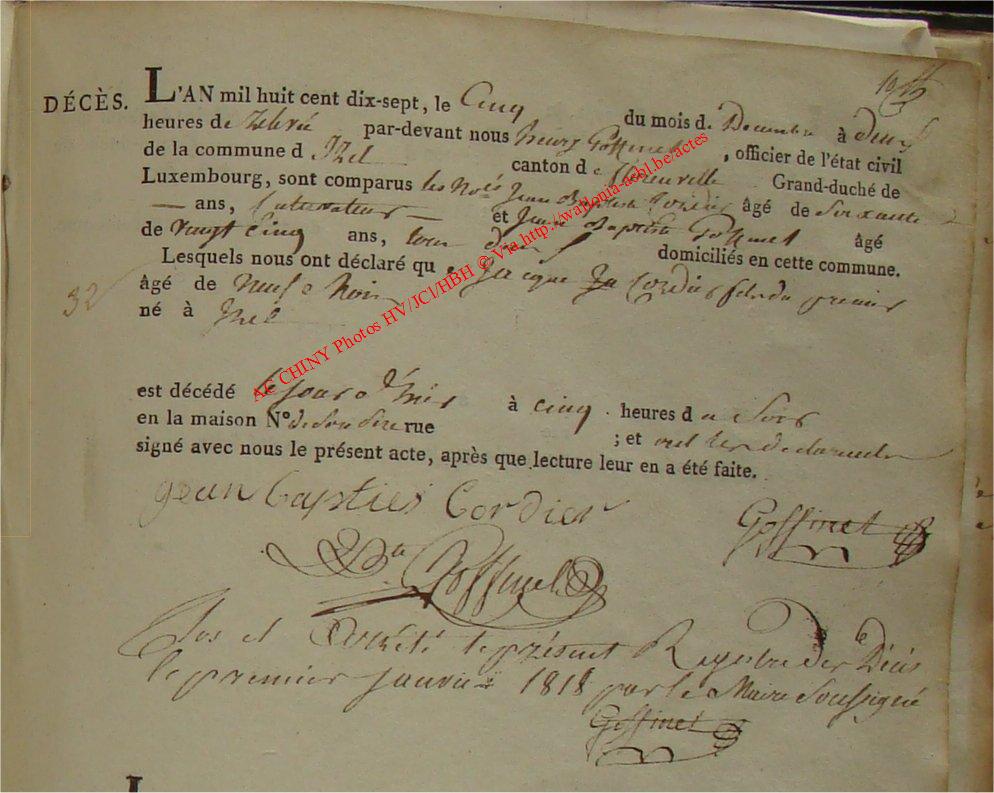 DÉCÈS. L'AN mil huit cent dix-sept, le Cinq du mois d. Decembre à deux
heures de relevée par-devant nous henry Goffinet, officier de l'état civil
de la commune d Izel canton d e florenville Grand-duché de
Luxembourg, sont comparus les Nés Jean Baptiste Cordier âgé de Soixante
— ans, Cultivateur — et Jean Baptiste Goffinet âgé
de vingt cinq ans, tous deux domiciliés en cette commune.
Lesquels nous ont déclaré qu e Jacque Cordier fils du premier
32
âgé de neuf mois
né à Izel
est décédé le jour d'hier à cinq heures d u Soir
en la maison N° de son père rue ; et ont les declarants
signé avec nous le présent acte, après que lecture leur en a été faite.
jean bapties Cordier
Goffinet
Goffinet
Clos et Arreté le présent Registre des Décès
le premier janvier 1818 par le Maire Soussigné
Goffinet
AE CHINY Photos HV/JCl/HBH © Via http://wallonia-asbl.be/actes